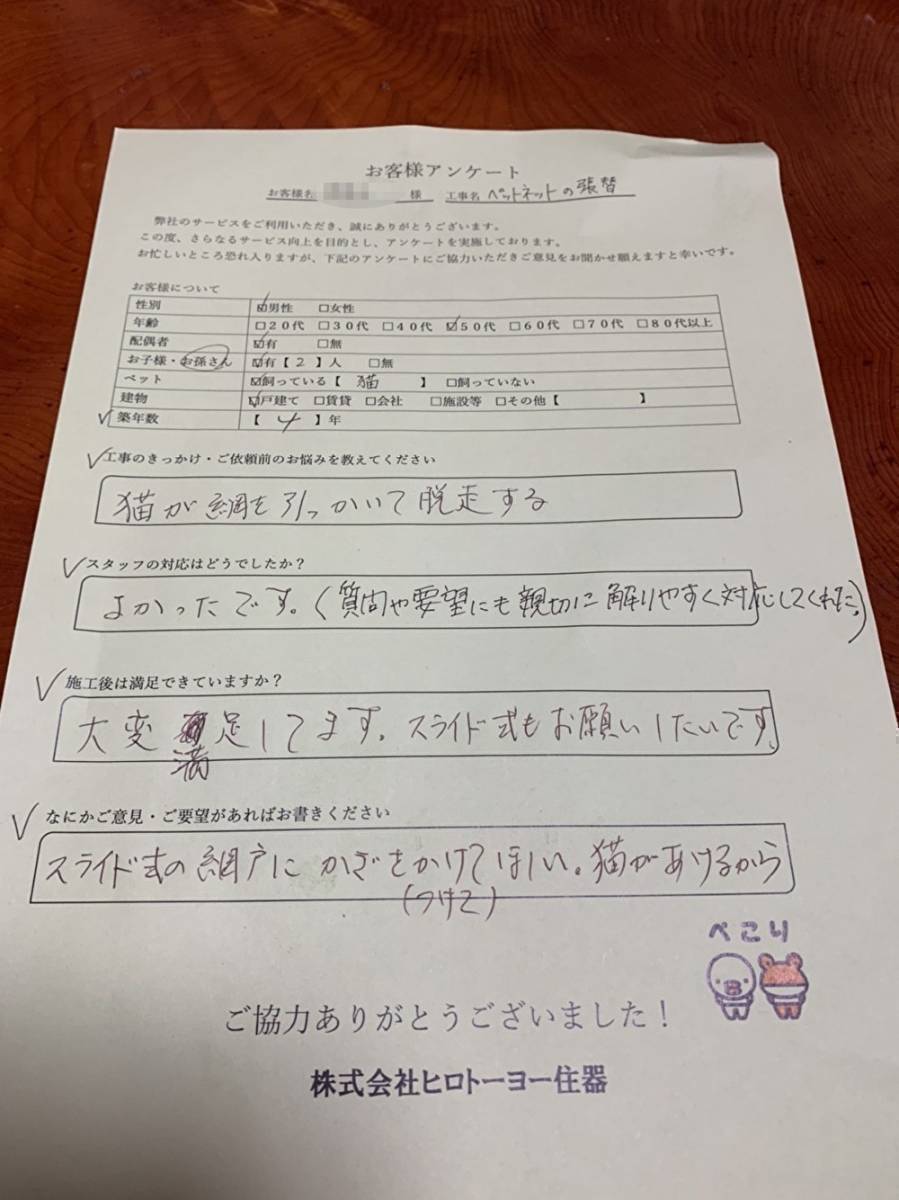 お客様アンケート
お客様名 様 工事名 ペットネットの張替
弊社のサービスをご利用いただき、誠にありがとうございます。
この度、さらなるサービス向上を目的とし、アンケートを実施しております。
お忙しいところ恐れ入りますが、下記のアンケートにご協力いただきご意見をお聞かせ願えますと幸いです。
お客様について
性別 ☑男性 □女性
年齢 □20代 □30代 □40代 ☑50代 □60代 □70代 □80代以上
配偶者 ☑有 □無
お子様・お孫さん ☑有【2】人 □無
ペット ☑飼っている【 猫 】 □飼っていない
建物 ☑戸建て □賃貸 □会社 □施設等 □その他【 】
✓築年数 【 4 】年
✓工事のきっかけ・ご依頼前のお悩みを教えてください
猫が網を引っかいて脱走する
✓スタッフの対応はどうでしたか?
よかったです。(質問や要望にも親切に解りやすく対応してくれた。)
✓施工後は満足できていますか?
大変満足してます。スライド式もお願いしたいです。
✓なにかご意見・ご要望があればお書きください
スライド式の網戸にかぎをかけてほしい。猫があけるから
(つけて)
ぺこり
ご協力ありがとうございました!
株式会社ヒロトーヨー住器